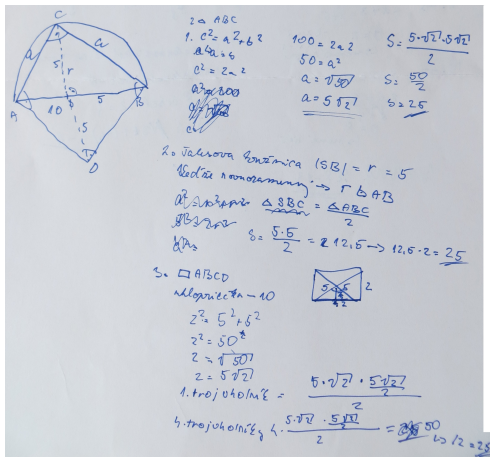 C
a
a
5
r
10
5
A
B
5
D
z △ ABC
1. c² = a² + b²
a = b
c² = 2a²
100 = 2a²
50 = a²
a = √50
a = 5√2
S = 5·√2·5√2 / 2
S = 50 / 2
S = 25
2. Talesova kružnica |SB| = r = 5
r ⊥ AB
△SBC = △ABC / 2
S = 5·5 / 2 = 12,5 → 12,5·2 = 25
3. □ABCD
uhlopriečka – 10
z² = 5² + 5²
z² = 50
z = √50
z = 5√2
5 5
z
1. trojuholník = 5·√2 · 5√2/2 / 2
4. trojuholníky 4 · 5·√2 · 5√2/2 / 2 = 50
/2 = 25